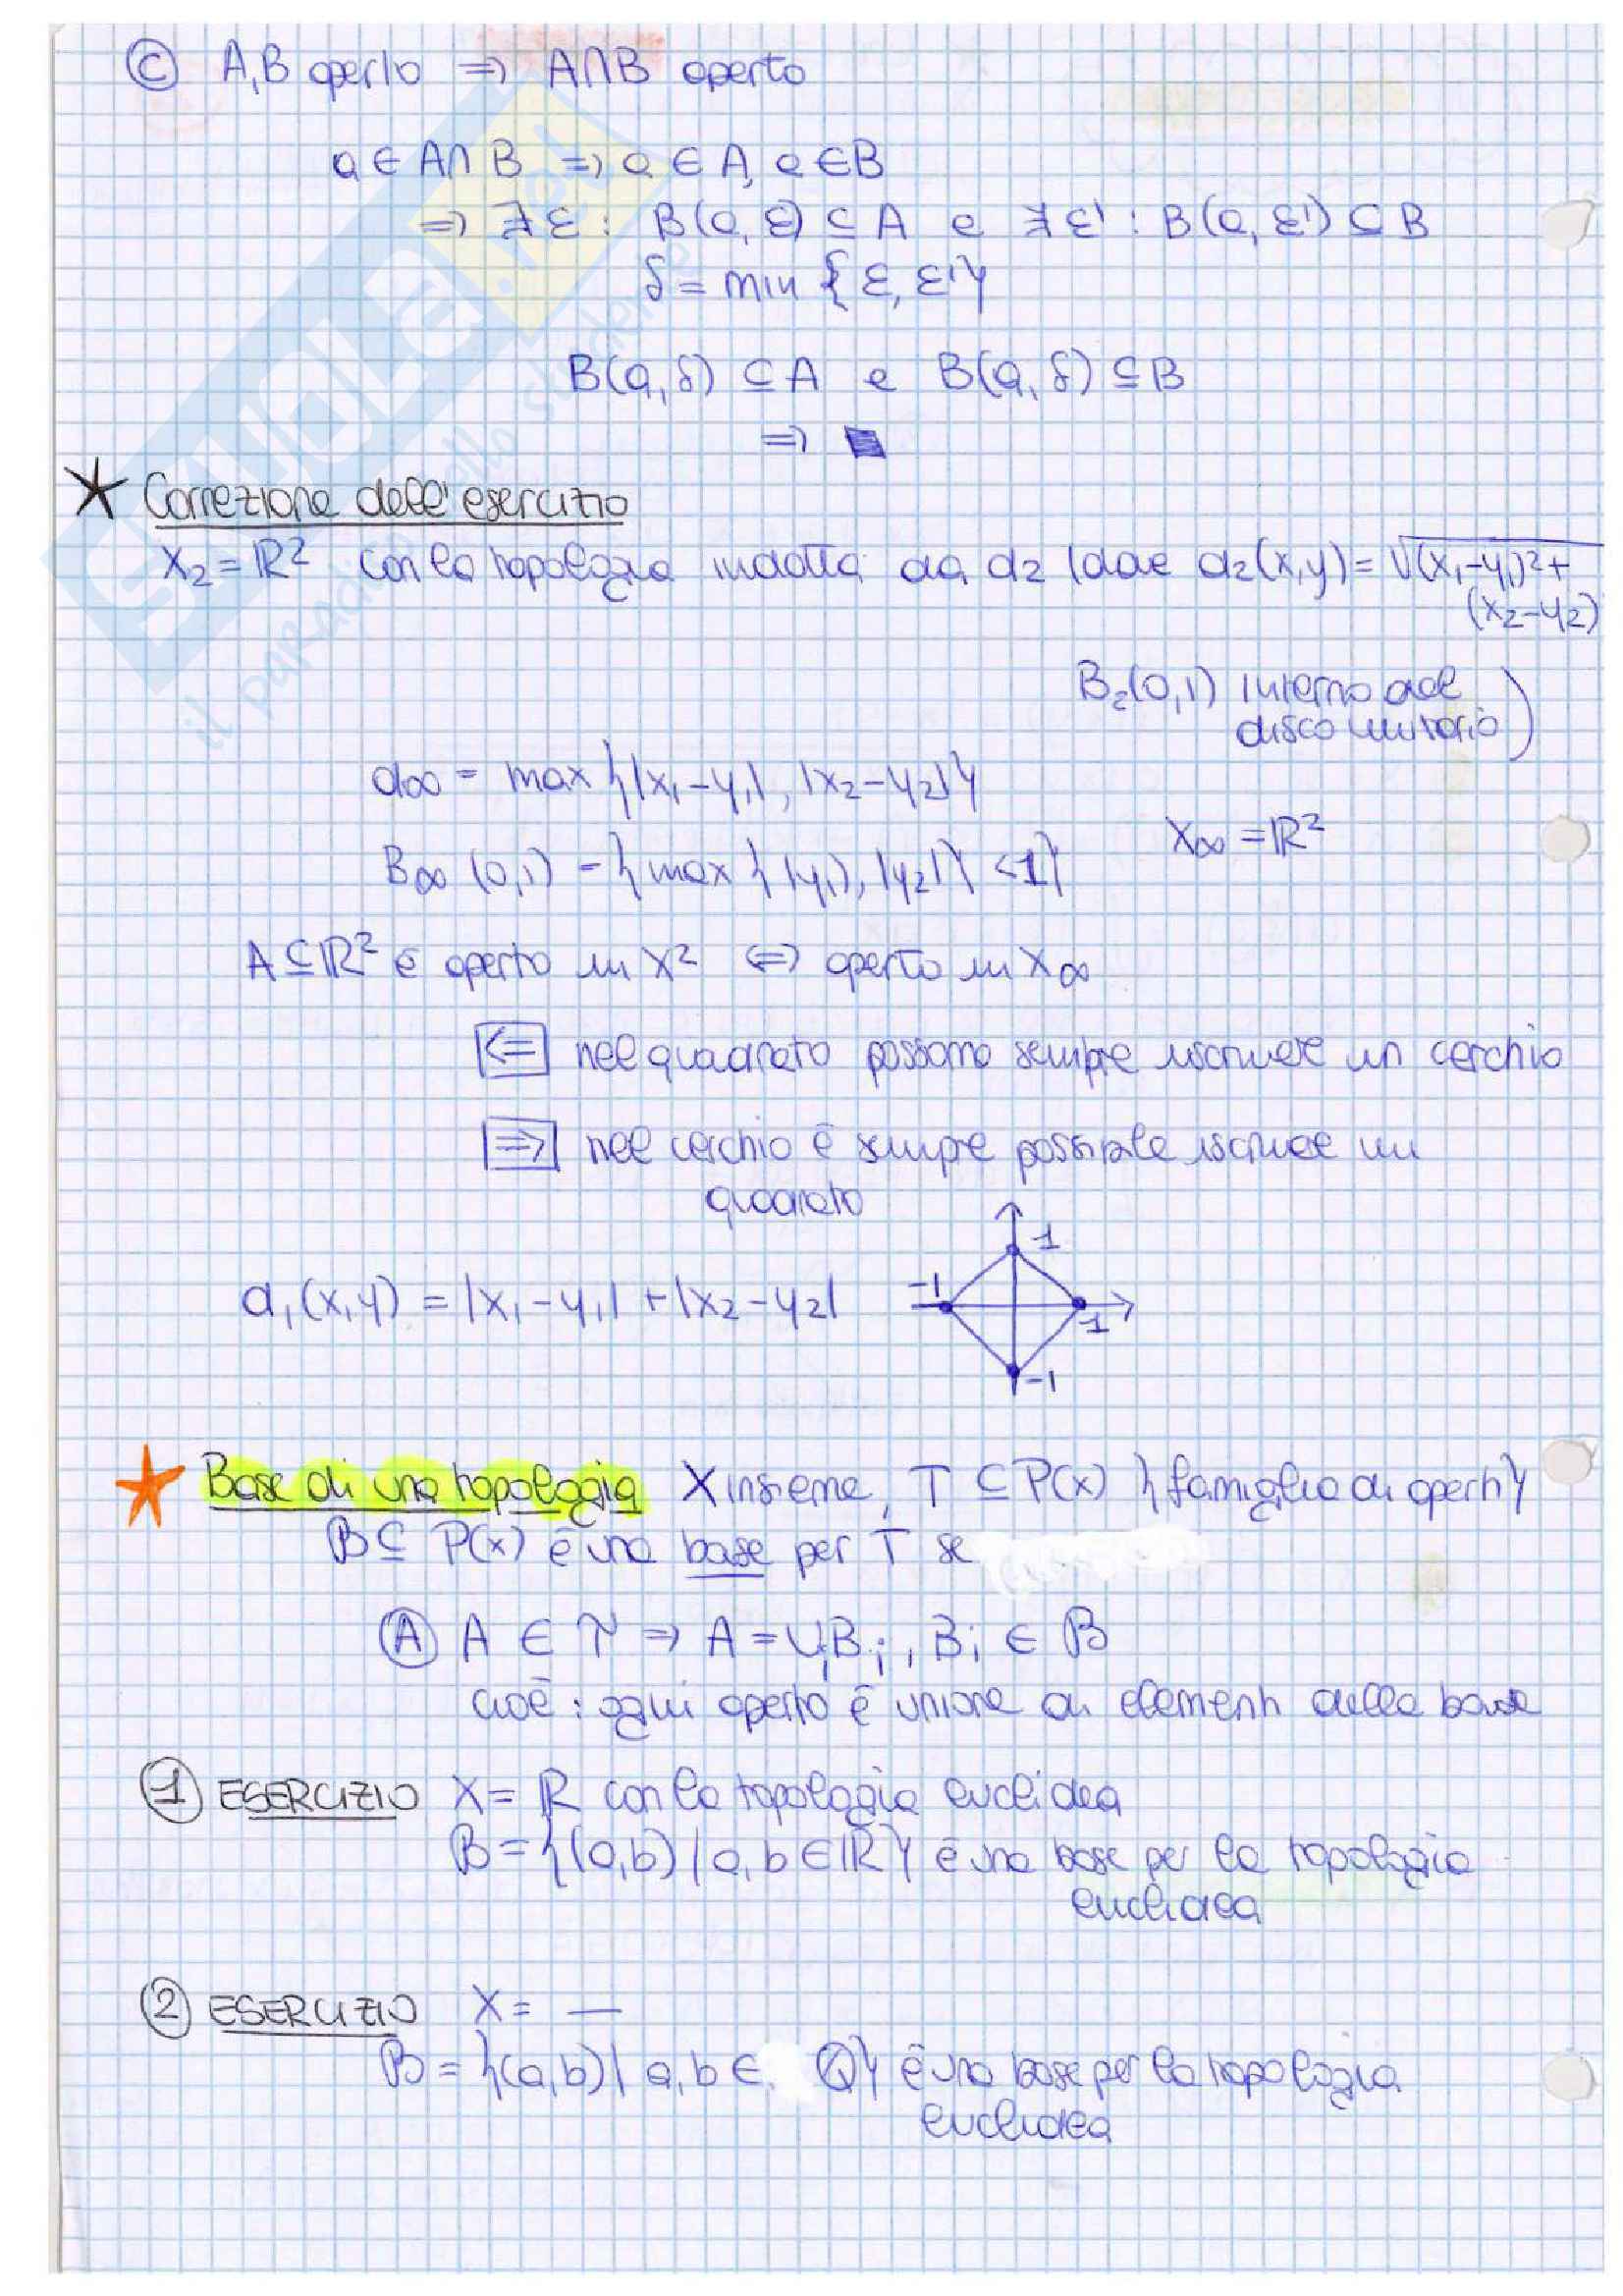 Ⓒ A,B aperto ⇒ A∩B aperto
a ∈ A∩B ⇒ a ∈ A, a ∈ B
⇒ ∃ ε : B(a, ε) ⊆ A e ∃ ε' : B(a, ε') ⊆ B
δ = min { ε, ε' }
B(a, δ) ⊆ A e B(a, δ) ⊆ B
⇒ ■
★ Correzione dell'esercizio
X₂ = ℝ² con la topologia indotta da d₂ (dove d₂(x,y) = √(x₁-y₁)² +
(x₂-y₂)
B₂(0,1) interno del
disco unitario )
d∞ = max {|x₁-y₁|, |x₂-y₂|}
X∞ = ℝ²
B∞ (0,1) = { max { |y₁|, |y₂| } < 1 }
A ⊆ ℝ² è aperto in X² ⇔ aperto in X∞
⇐ nel quadrato possono sempre iscrivere un cerchio
⇒ nel cerchio è sempre possibile iscrivere un
quadrato
1
-1
d₁(x,y) = |x₁-y₁| + |x₂-y₂|
1
-1
★ Base di una topologia X insieme, T ⊆ P(x) {famiglia di aperti}
B ⊆ P(x) è una base per T se
Ⓐ A ∈ T ⇒ A = ∪ᵢBᵢ, Bᵢ ∈ B
cioè: ogni aperto è unione di elementi della base
① ESERCIZIO X = ℝ con la topologia euclidea
B = {(a,b) | a,b ∈ ℝ} è una base per la topologia
euclidea
② ESERCIZIO X = —
B = {(a,b) | a,b ∈ Q} è una base per la topologia
euclidea
SKUOLA.net
il paradiso dello studente